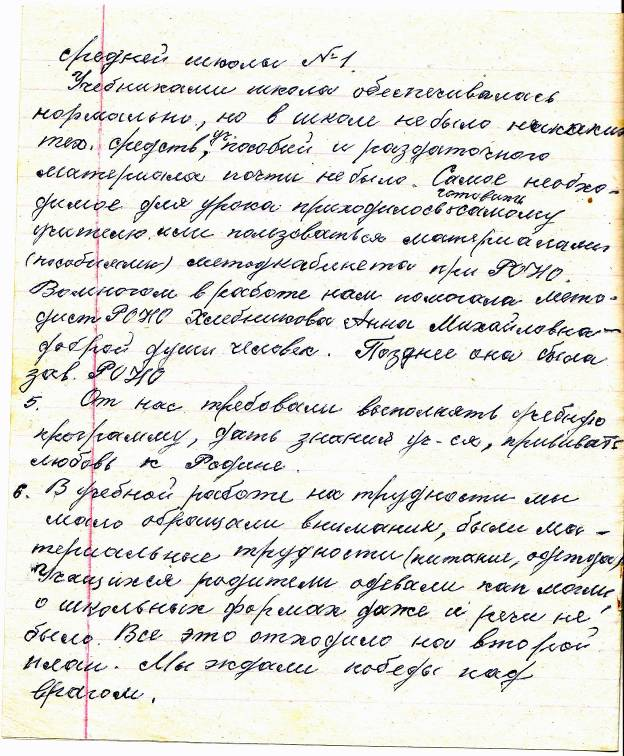 средней школы №1.
Учебниками школа обеспечивалась
нормально, но в школе небыло никаких
тех. средств, уч. пособий и раздаточного
материала почти небыло. Самое необхо-
димое для урока приходилось готовить самому
учителю или пользоваться материалами
(пособиями) методкабинета при РОНО.
Вомногом в работе нам помогала мето-
дист РОНО Хлебникова Анна Михайловна –
доброй души человек. Позднее она была
зав. РОНО
5. От нас требовали выполнять учебную
программу, дать знания уч-ся, прививать
любовь к Родине.
6. В учебной работе на трудности мы
мало обращали внимания, были ма-
териальные трудности (питание, одежда)
Учащихся родители одевали как могли,
о школьных формах даже и речи не
было. Все это отходило на второй
план. Мы ждали победы над
врагом.